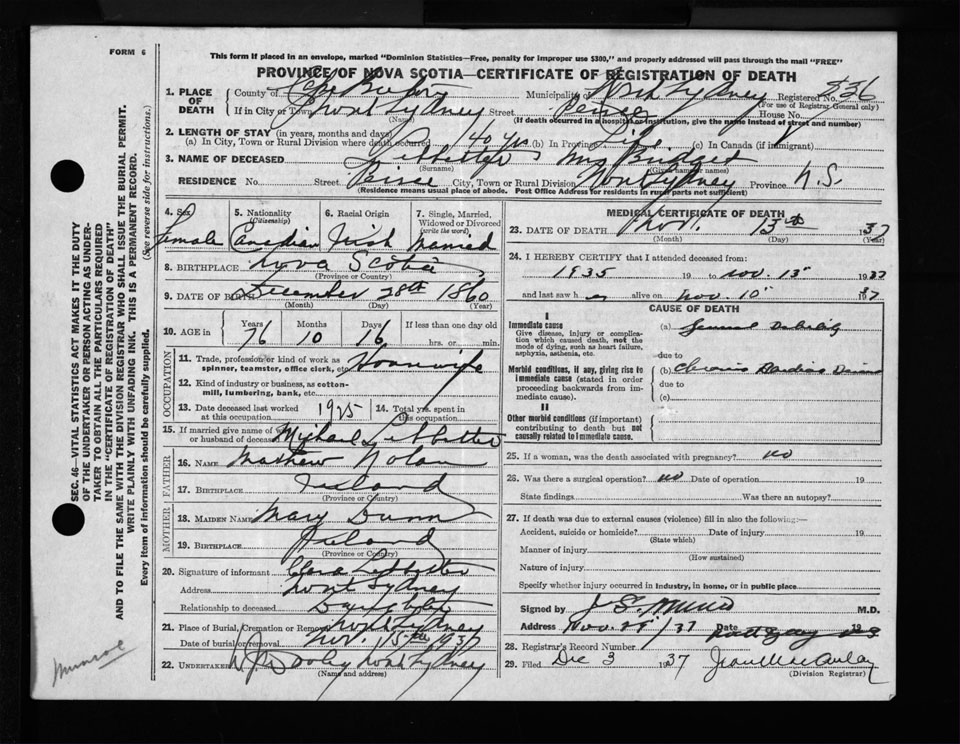 FORM 6
This form if placed in an envelope, marked "Dominion Statistics—Free, penalty for improper use $300," and properly addressed will pass through the mail "FREE"
PROVINCE OF NOVA SCOTIA—CERTIFICATE OF REGISTRATION OF DEATH
1. PLACE OF DEATH
County of Cape Breton Municipality of North Sydney Registered No. 536
(For use of Registrar General only)
If in City or Town North Sydney Street Peirce House No.
(Name) (If death occurred in a hospital or institution, give the name instead of street and number)
2. LENGTH OF STAY (in years, months and days)
(a) In City, Town or Rural Division where death occurred 40 yrs (b) In Province Life (c) In Canada (if immigrant)
3. NAME OF DECEASED Ledbetter Mrs Bridget
(Surname) (Given name or names)
RESIDENCE No. Street City, Town or Rural Division North Sydney Province N.S.
(Residence means usual place of abode. Post Office Address for residents in rural parts not sufficient)
4. Sex 5. Nationality (Citizenship) 6. Racial Origin 7. Single, Married, Widowed or Divorced (write the word)
Female Canadian Irish Married
8. BIRTHPLACE Nova Scotia
(Province or Country)
9. DATE OF BIRTH December 28th 1860
(Month) (Day) (Year)
10. AGE in Years Months Days If less than one day old
76 10 16 hrs. or min.
OCCUPATION
11. Trade, profession or kind of work as spinner, teamster, office clerk, etc. Housewife
12. Kind of industry or business, as cotton-mill, lumbering, bank, etc.
13. Date deceased last worked at this occupation 1925 14. Total yrs. spent in this occupation
15. If married give name of wife or husband of deceased Michael Ledbetter
FATHER
16. NAME Mathew Nolan
17. BIRTHPLACE Ireland
(Province or Country)
MOTHER
18. MAIDEN NAME Mary Dunn
19. BIRTHPLACE Ireland
(Province or Country)
20. Signature of informant Clara Ledbetter
Address North Sydney
Relationship to deceased Daughter
21. Place of Burial, Cremation or Removal North Sydney
Date of burial or removal Nov. 15th 1937
22. Undertaker Dooley North Sydney
(Name and address)
MEDICAL CERTIFICATE OF DEATH
23. DATE OF DEATH Nov. 13th 1937
(Month) (Day) (Year)
24. I HEREBY CERTIFY that I attended deceased from:
1935 19 to Nov. 13 1937
and last saw her alive on Nov. 10 1937
CAUSE OF DEATH
I
Immediate cause
Give disease, injury or complication which caused death, not the mode of dying, such as heart failure, asphyxia, asthenia, etc.
(a) General Debility
due to
Morbid conditions, if any, giving rise to immediate cause (stated in order proceeding backwards from immediate cause).
(b) Chronic Cardiac Disease
due to
(c)
II
Other morbid conditions (if important) contributing to death but not causally related to immediate cause.
25. If a woman, was the death associated with pregnancy? no
26. Was there a surgical operation? no Date of operation 19
State findings Was there an autopsy?
27. If death was due to external causes (violence) fill in also the following:—
Accident, suicide or homicide? Date of injury 19
(State which)
Manner of injury
(How sustained)
Nature of injury
Specify whether injury occurred in industry, in home, or in public place
Signed by M.D.
Address Nov. 29/37 Date North Sydney N.S. 19
28. Registrar's Record Number
29. Filed Dec 3 1937 Jean MacAulay
(Division Registrar)
SEC. 46—VITAL STATISTICS ACT MAKES IT THE DUTY
OF THE UNDERTAKER OR PERSON ACTING AS UNDER-
TAKER TO OBTAIN ALL THE PARTICULARS REQUIRED
IN THE "CERTIFICATE OF REGISTRATION OF DEATH"
AND TO FILE THE SAME WITH THE DIVISION REGISTRAR WHO SHALL ISSUE THE BURIAL PERMIT.
WRITE PLAINLY WITH UNFADING INK. THIS IS A PERMANENT RECORD.
Every item of information should be carefully supplied. (See reverse side for instructions.)
Munroe